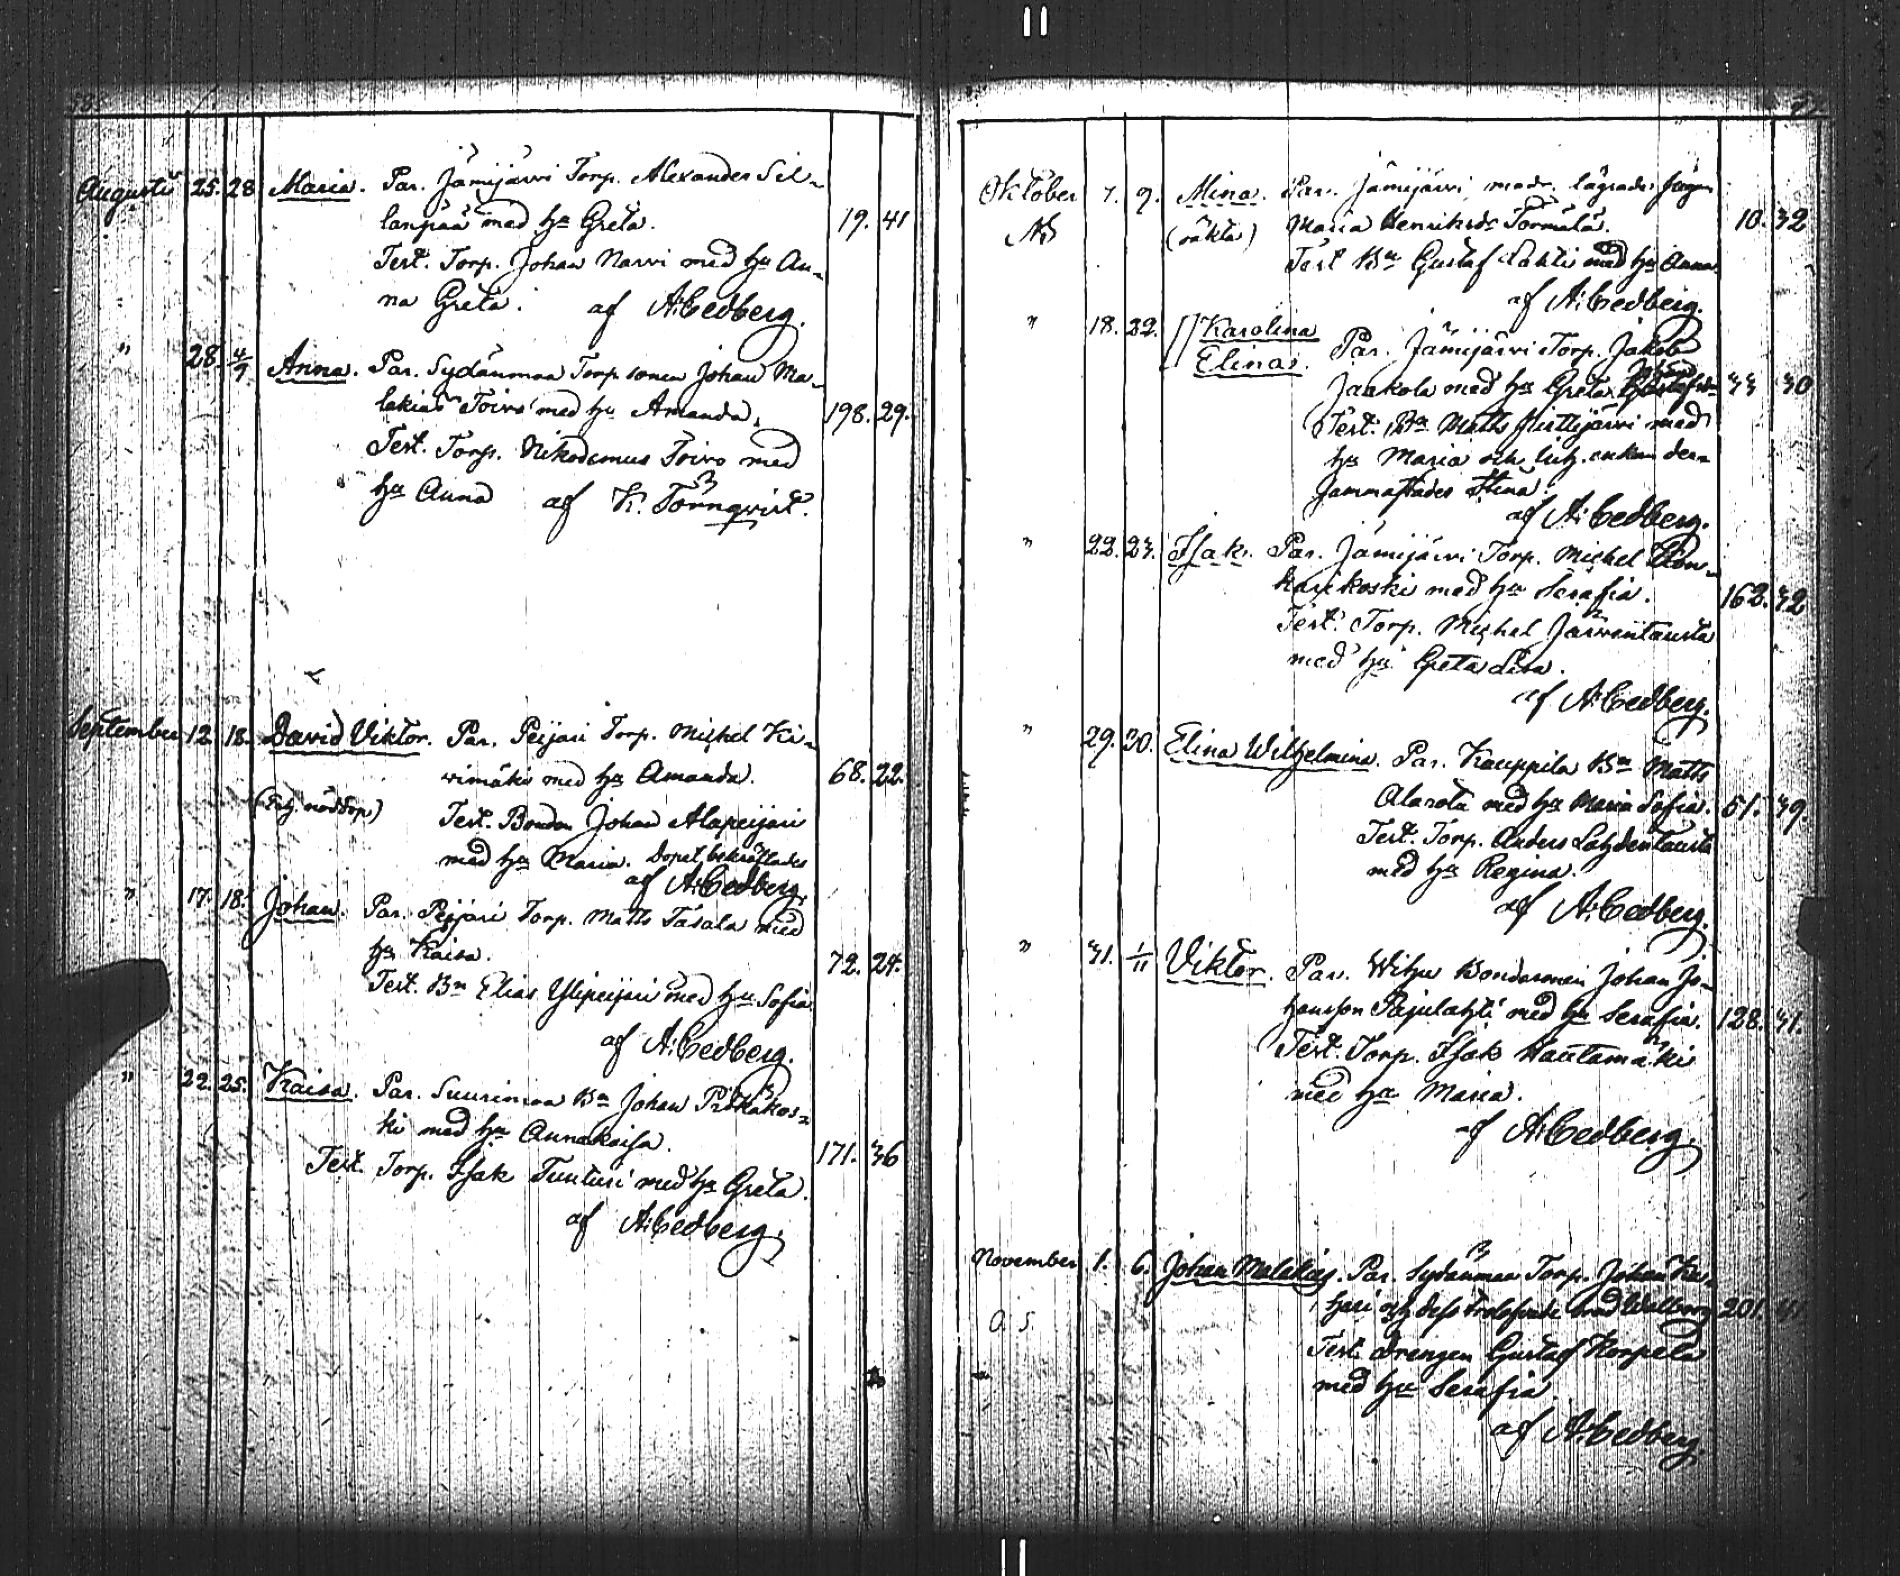 Augusti 25. 28 Maria. Par. Jämijärvi Torp. Alexander Sil-
lanpää med hu Greta. 19. 41
Test. Torp. Johan Narvi med hu An-
na Greta. af A. Cedberg.
" 28. 4/9 Anna. Par. Sydänmaa Torp sonen Johan Ma-
lakias Toivo med hu Amanda. 198. 29.
Test. Torp. Nikodemus Toivo med
hu Anna af K. Törnqvist.
September 12. 18. David Viktor. Par. Peijari Torp. Michel Ki-
vimäki med hu Amanda. 68. 22.
(Enl. nöddop) Test. Bonden Johan Alapeijari
med hu Maria. Dopet bekräftades
af A. Cedberg.
" 17. 18. Johan. Par. Peijari Torp. Matts Tasala med
hu Kaisa. 72. 24.
Test. Bn Elias Ylipeijari med hu Sofia
af A. Cedberg.
" 22. 25. Kaisa. Par. Suurimaa Bn Johan Pitkäkos-
ki med hu Annakaisa. 171. 36
Test. Torp. Isak Tunturi med hu Greta.
af A. Cedberg.
Oktober 7. 9. Mina. Par. Jämijärvi lägrade
(oäkta) Maria Henriksdr Törmälä. 10. 32
Test Bn Gustaf med hu Anna
af A. Cedberg.
" 18. 22. Karolina
Elina. Par. Jämijärvi Torp. Jakob
Jaakola med hu Greta 33 30
Test. Bn Matts med
hu Maria och enkan der-
sammastädes Stina.
af A. Cedberg.
" 22. 23. Isak. Par. Jämijärvi Torp. Michel Kon-
karikoski med hu Serafia. 162. 32
Test. Torp. Michel Järventausta
med hu Greta Lisa.
af A. Cedberg.
" 29. 30. Elina Wilhelmina. Par. Kauppila Bn Matts
Alarota med hu Maria Sofia. 51. 39.
Test. Torp. Anders Lahdentausta
med hu Regina.
af A. Cedberg.
" 31. 1/11 Viktor. Par. Wihu Bondesonen Johan Jo-
hansson Pajulahti med hu Serafia. 128. 31.
Test. Torp. Isak Hautamäki
med hu Maria.
af A. Cedberg.
November 1. 6. Johan Malakias. Par. Sydänmaa Torp. Johan
och dess trolofvade brud Walborg 201.
Test. Drengen Gustaf Korpela
med hu Serafia.
af A. Cedberg